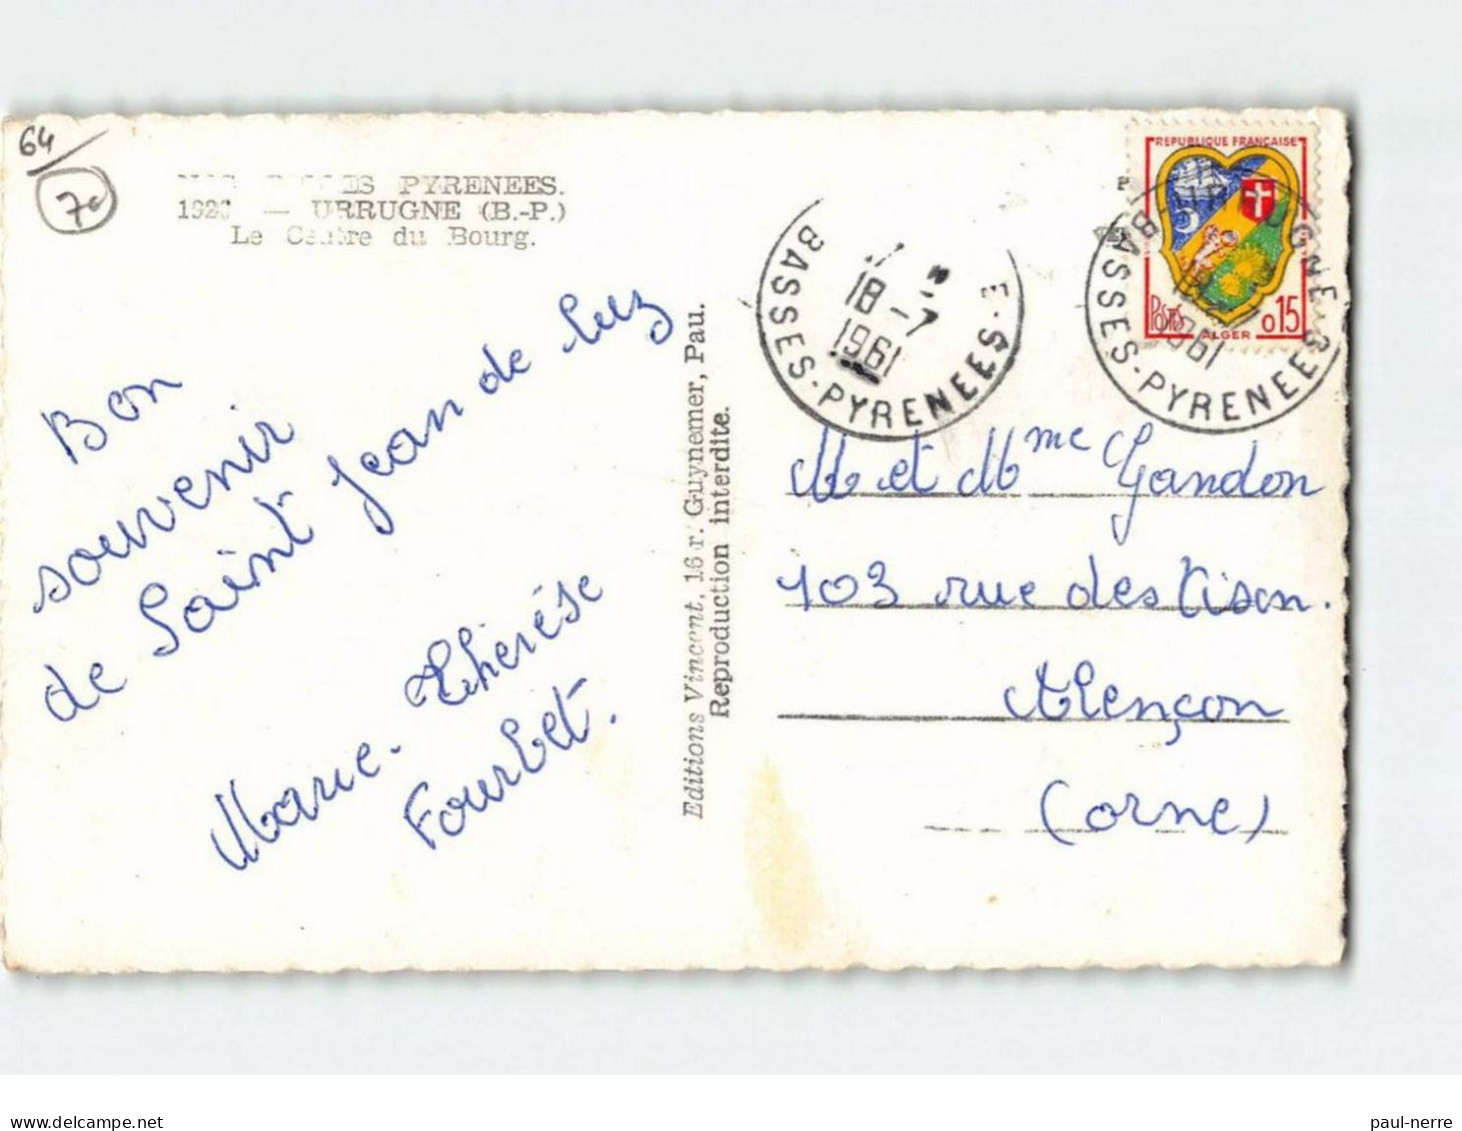 64
PYRENEES.
URRUGNE (B.-P.)
Le Centre du Bourg.
Bon
souvenir
de Saint Jean de Luz
Marie-Thérèse
Fourbet.
Editions Vincent, 16 r. Guynemer, Pau.
Reproduction interdite.
18-7
1961
BASSES-PYRENEES
REPUBLIQUE FRANÇAISE
POSTES
ALGER
0,15
1961
BASSES-PYRENEES
M et Mme Gandon
103 rue des Tison.
Alençon
(orne)
paul-nerre